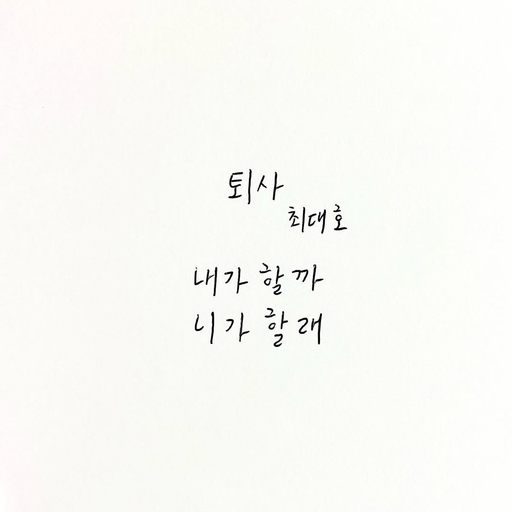 퇴사
최대호
내가 할까
니가 할래